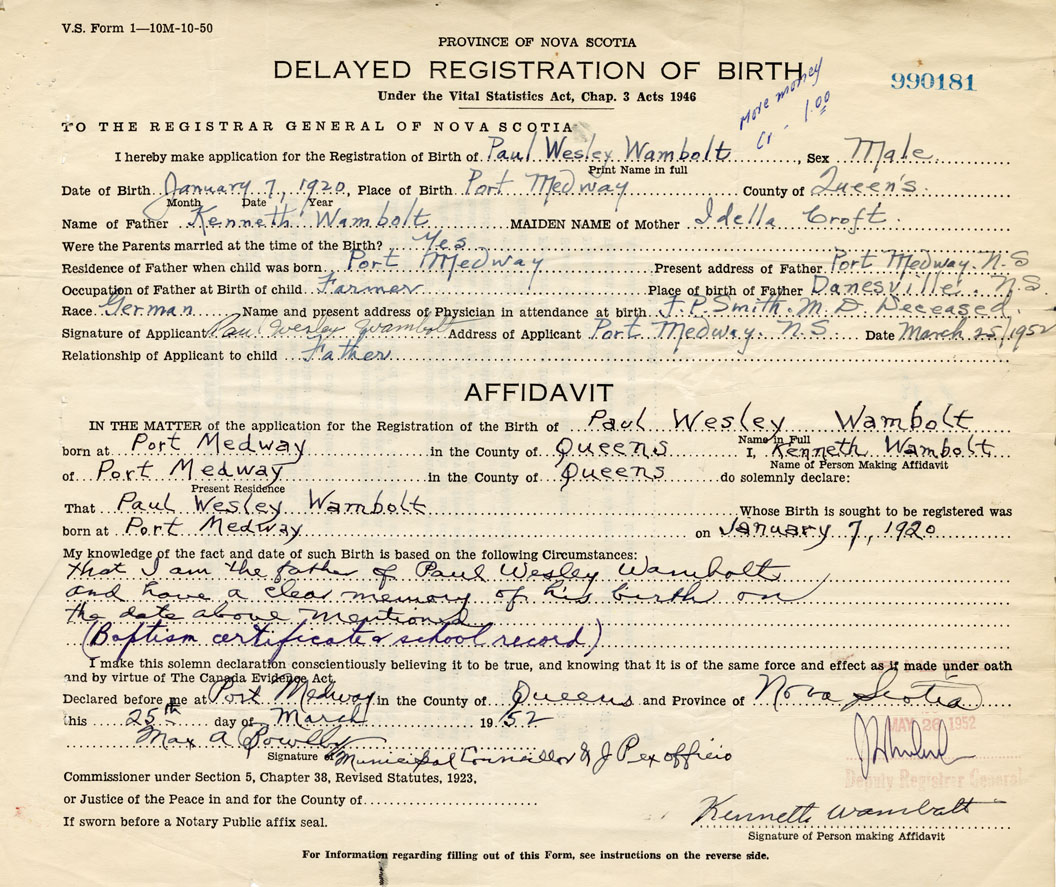 V.S. Form 1—10M-10-50
PROVINCE OF NOVA SCOTIA
DELAYED REGISTRATION OF BIRTH
990181
Under the Vital Statistics Act, Chap. 3 Acts 1946
More money
Cr - 1.00
TO THE REGISTRAR GENERAL OF NOVA SCOTIA
I hereby make application for the Registration of Birth of Paul Wesley Wambolt, Sex Male
Print Name in full
Date of Birth January 7, 1920, Place of Birth Port Medway County of Queen's
Month Date Year
Name of Father Kenneth Wambolt MAIDEN NAME of Mother Idella Croft
Were the Parents married at the time of the Birth? Yes
Residence of Father when child was born Port Medway Present address of Father Port Medway. N.S
Occupation of Father at Birth of child Farmer Place of birth of Father Danesville. N.S.
Race German Name and present address of Physician in attendance at birth F.P. Smith. M.D. Deceased
Signature of Applicant Paul Wesley Wambolt Address of Applicant Port Medway. N.S Date March 25/1952
Relationship of Applicant to child Father
AFFIDAVIT
IN THE MATTER of the application for the Registration of the Birth of Paul Wesley Wambolt
Name in Full
born at Port Medway in the County of Queens I, Kenneth Wambolt
Name of Person Making Affidavit
of Port Medway in the County of Queens do solemnly declare:
Present Residence
That Paul Wesley Wambolt Whose Birth is sought to be registered was
born at Port Medway on January 7, 1920
My knowledge of the fact and date of such Birth is based on the following Circumstances:
that I am the father of Paul Wesley Wambolt
and have a clear memory of his birth on
the date above mentioned
(Baptism certificate & school record)
I make this solemn declaration conscientiously believing it to be true, and knowing that it is of the same force and effect as if made under oath
and by virtue of The Canada Evidence Act.
Declared before me at Port Medway in the County of Queens and Province of Nova Scotia
this 25th day of March 1952
MAY 26 1952
Max A
Signature of Municipal Councillor & J P ex officio
Deputy Registrar General
Commissioner under Section 5, Chapter 38, Revised Statutes, 1923,
or Justice of the Peace in and for the County of
Kenneth Wambolt
If sworn before a Notary Public affix seal.
Signature of Person making Affidavit
For Information regarding filling out of this Form, see instructions on the reverse side.